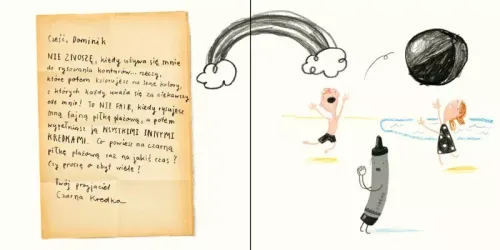 Cześć, Dominik
NIE ZNOSZĘ, kiedy używa się mnie
do rysowania konturów... rzeczy,
które potem kolorujesz na inne kolory,
z których każdy uważa się za ciekawszy
ode mnie! To NIE FAIR, kiedy rysujesz
mną fajną piłkę plażową, a potem
wypełniasz ją WSZYSTKIMI INNYMI
KREDKAMI. Co powiesz na czarną
piłkę plażową raz na jakiś czas?
Czy proszę o zbyt wiele?
Twój przyjaciel
Czarna Kredka